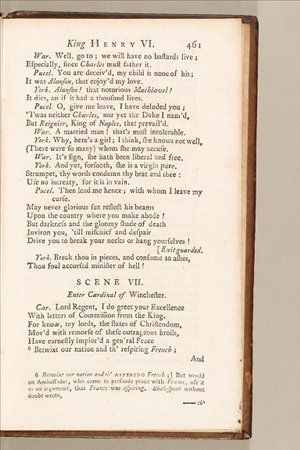 King HENRY VI. 461
War. Well, go to; we will have no bastards live;
Especially, since Charles must father it.
Pucel. You are deceiv'd, my child is none of his;
It was Alanson, that enjoy'd my love.
York. Alanson! that notorious Machiavel!
It dies, an if it had a thousand lives.
Pucel. O, give me leave, I have deluded you;
'Twas neither Charles, nor yet the Duke I nam'd,
But Reignier, King of Naples, that prevail'd.
War. A married man! that's most intolerable.
York. Why, here's a girl; I think, she knows not well,
(There were so many) whom she may accuse.
War. It's sign, she hath been liberal and free.
York. And yet, forsooth, she is a virgin pure.
Strumpet, thy words condemn thy brat and thee:
Use no intreaty, for it is in vain.
Pucel. Then lead me hence; with whom I leave my
curse.
May never glorious sun reflect his beams
Upon the country where you make abode!
But darkness and the gloomy shade of death
Inviron you, 'till mischief and despair
Drive you to break your necks or hang yourselves!
[Exit guarded.
York. Break thou in pieces, and consume to ashes,
Thou foul accursed minister of hell!
SCENE VII.
Enter Cardinal of Winchester.
Car. Lord Regent, I do greet your Excellence
With letters of Commission from the King.
For know, my lords, the states of Christendom,
Mov'd with remorse of these outrageous broils,
Have earnestly implor'd a gen'ral Peace
6 Betwixt our nation and th' respiring French;
And
6 Betwixt our nation and th' ASPIRING French;] But would
an Ambassador, who came to persuade peace with France, use it
as an argument, that France was aspiring. Shakespear without
doubt wrote,